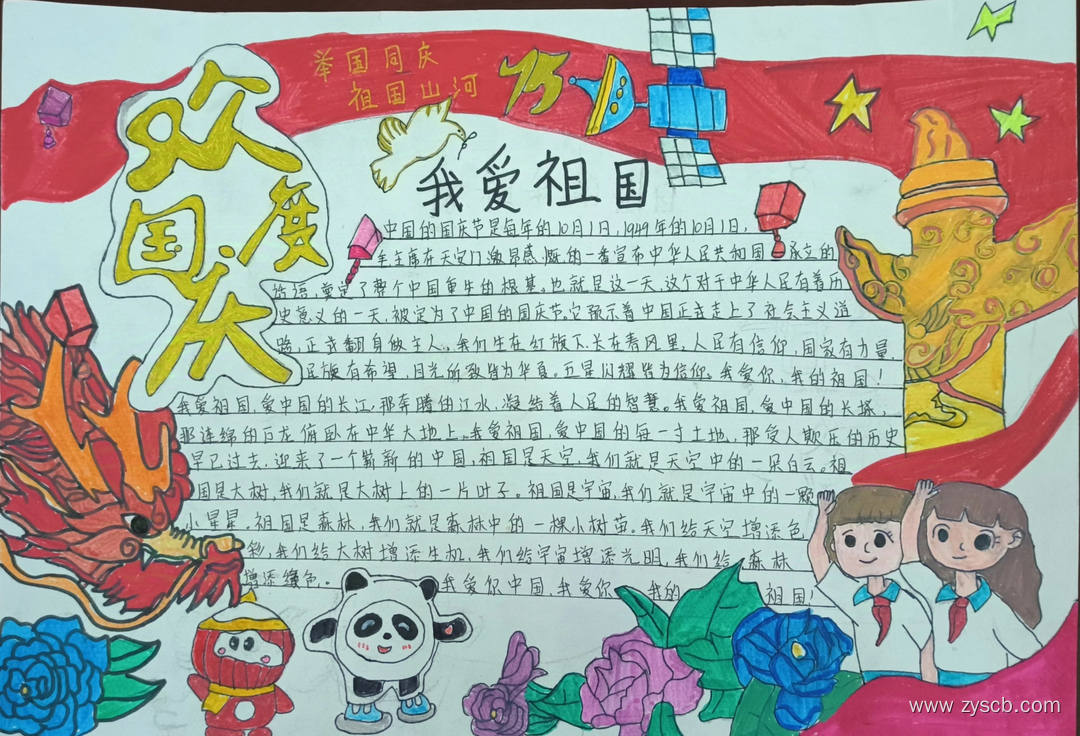 举国同庆
祖国山河
75
欢度国庆
我爱祖国
中国的国庆节是每年的10月1日,1949年的10月1日,
毛主席在天安门激昂感慨的一番宣布中华人民共和国承立的
话语,奠定了整个中国重生的根基。也就是这一天,这个对于中华人民有着历
史意义的一天,被定为了中国的国庆节,它预示着中国正式走上了社会主义道
路,正式翻身做主人。我们生在红旗下,长在春风里,人民有信仰,国家有力量,
民族有希望,目光所致皆为华夏,五星闪耀皆为信仰。我爱你,我的祖国!
我爱祖国,爱中国的长江,那奔腾的江水,凝结着人民的智慧。我爱祖国,爱中国的长城,
那连绵的巨龙俯卧在中华大地上。我爱祖国,爱中国的每一寸土地,那受人欺压的历史
早已过去,迎来了一个崭新的中国,祖国是天空,我们就是天空中的一朵白云。祖
国是大树,我们就是大树上的一片叶子。祖国是宇宙,我们就是宇宙中的一颗
小星星。祖国是森林,我们就是森林中的一棵小树苗。我们给天空增添色
彩,我们给大树增添生机,我们给宇宙增添光明,我们给森林
增添绿色。我爱你中国,我爱你我的祖国!
www.zyscb.com